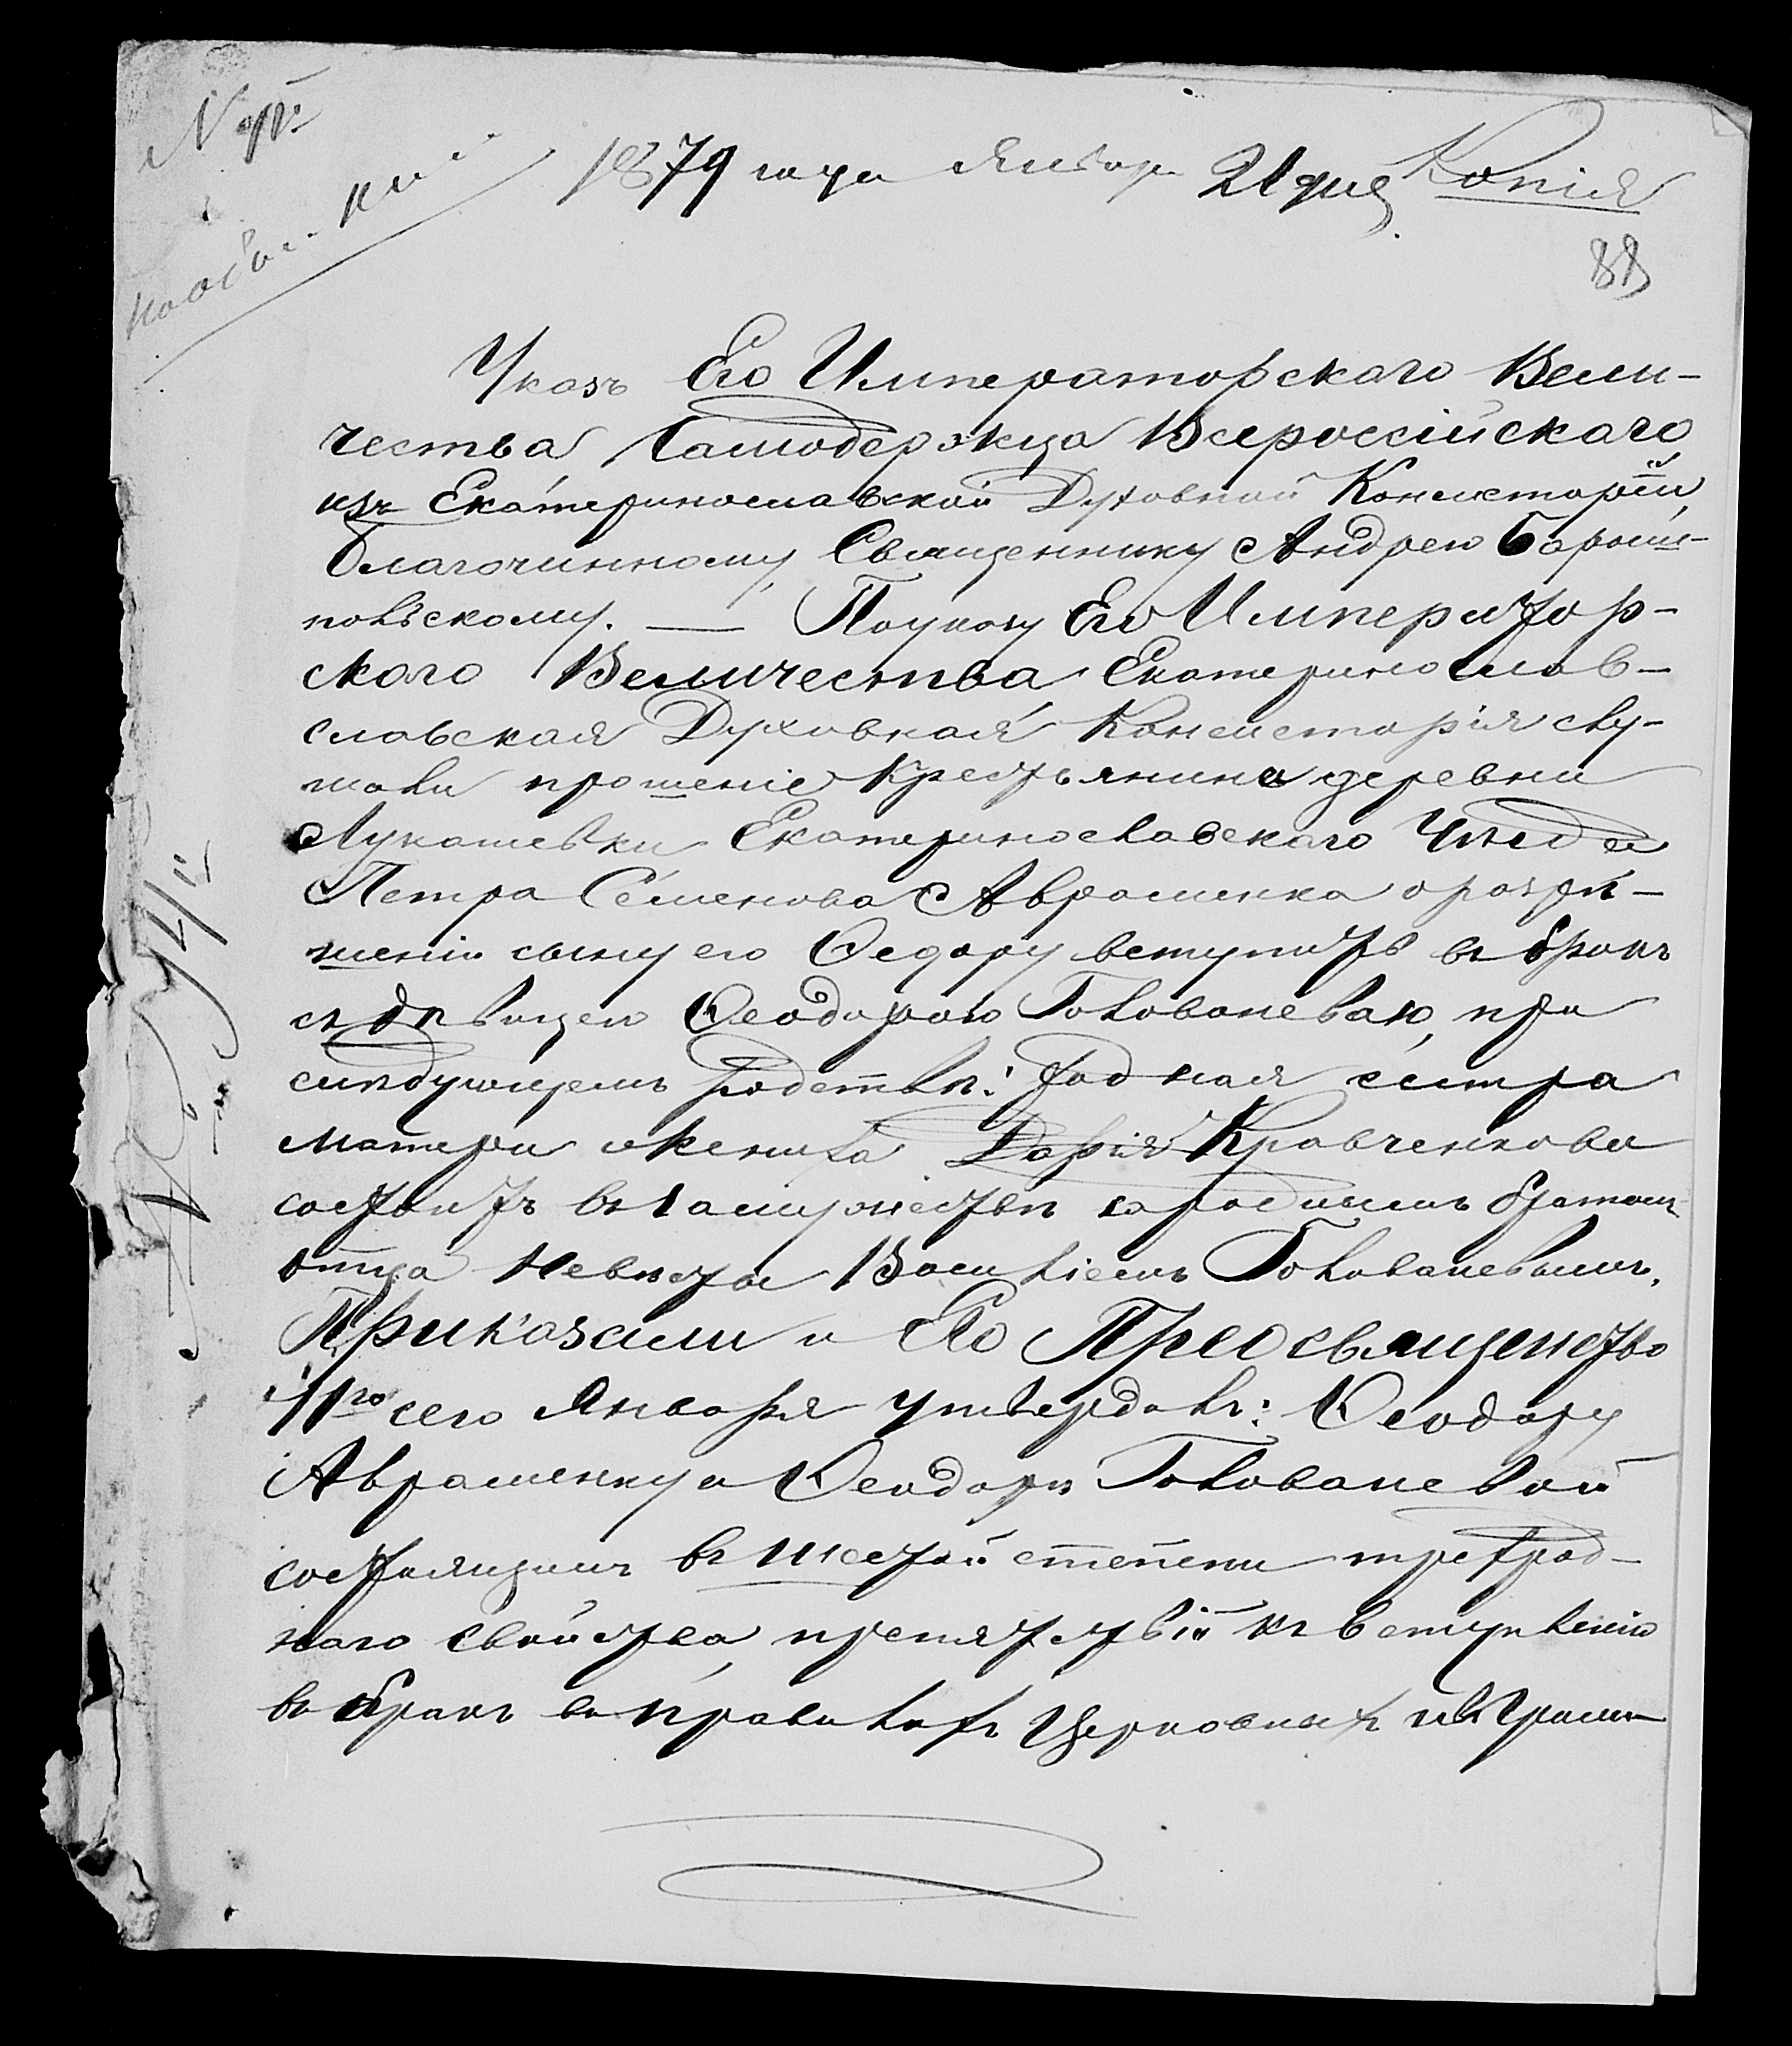 1879 года Января 21 дня Копія
88
Указъ Его Императорскаго Вели-
чества Самодержца Всероссійскаго,
изъ Екатеринославской Духовной Консисторіи,
Благочинному, Священнику Андрею Барыш-
повскому. — По указу Его Император-
скаго Величества Екатеринослав-
славская Духовная Консисторія слу-
шали прошеніе Крестьянина деревни
Лукашевки Екатеринославскаго Уѣзда
Петра Семенова Авраменка о розрѣ-
шеніи сыну его Ѳедору вступить въ бракъ
съ дѣвицею Ѳеодорою Голованевою, при
слѣдующемъ родствѣ: родная сестра
матери жениха Дарія Кравченкова
состоитъ въ замужествѣ съ роднымъ братомъ
отца невѣсты Василіемъ Голованевымъ.
Приказали и Его Преосвященство
11го сего Января утвердилъ: Ѳеодору
Авраменку и Ѳеодорѣ Голованевой
состоящимъ въ шестой степени трехрод-
наго свойства, препятствій къ вступленію
въ бракъ въ правилахъ Церковныхъ и въ Граж